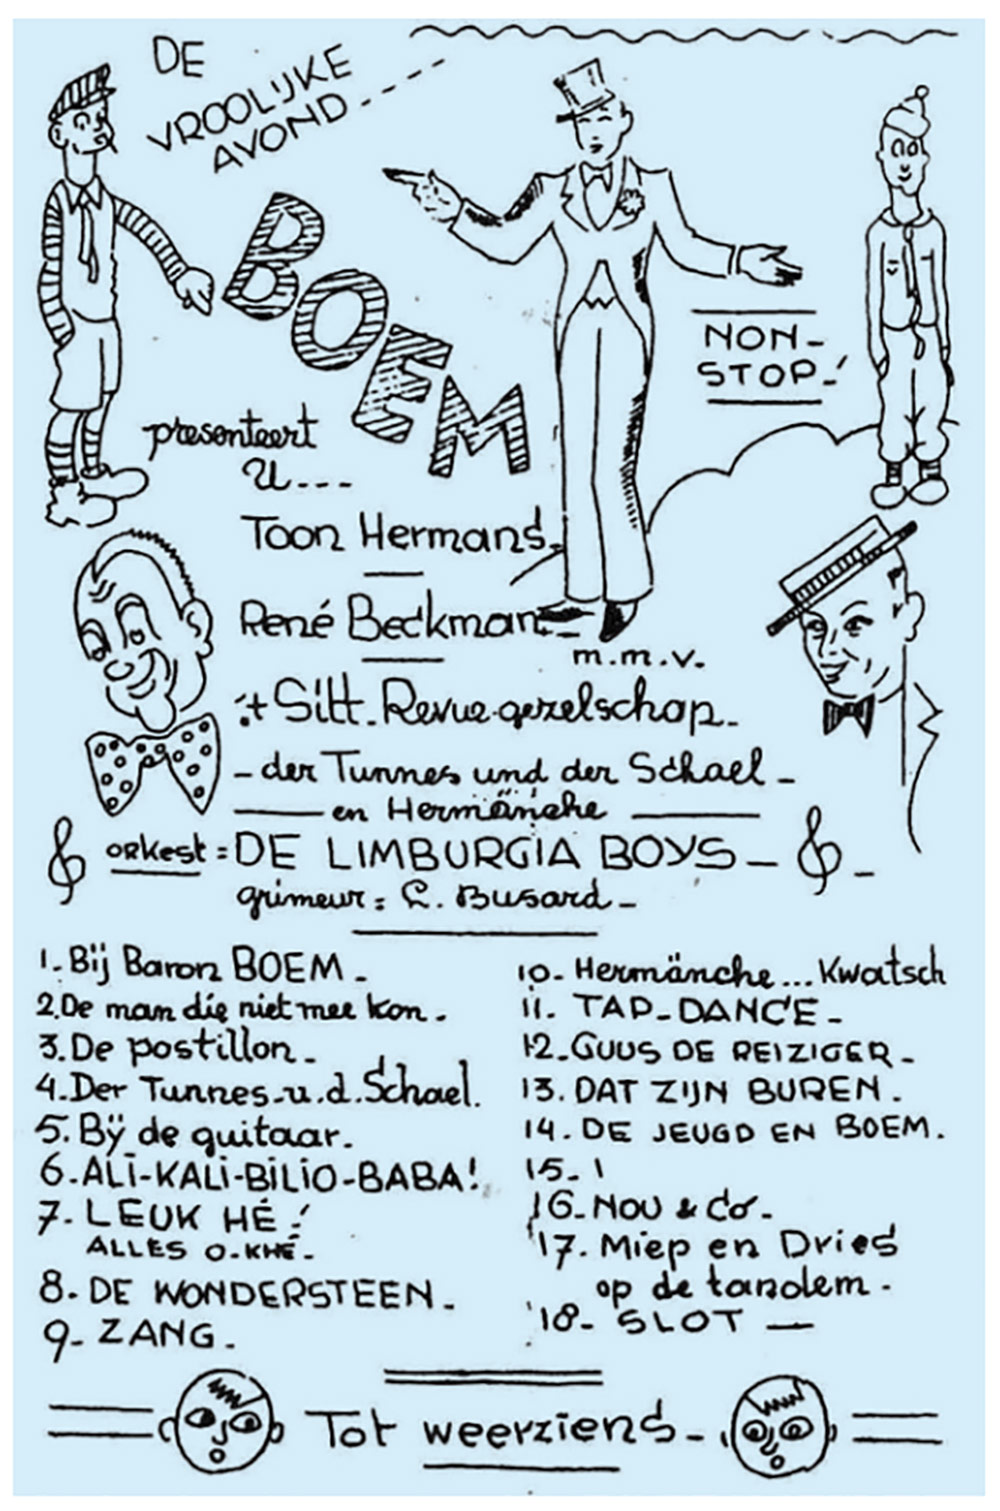 DE
VROOLIJKE
AVOND
BOEM
NON-
STOP-!
presenteert
U...
Toon Hermans
René Beckman
m.m.v.
't Sitt. Revue gezelschap
- der Tunnes und der Schael -
en Hermänche
orkest = DE LIMBURGIA BOYS -
grimeur: C. Busard -
1. Bij Baron BOEM -
2. De man die niet mee kon.
3. De postillon -
4. Der Tunnes-u.d. Schael.
5. Bij de guitaar.
6. ALI-KALI-BILIO-BABA!
7. LEUK HÉ!
ALLES O-KHÉ-
8. DE WONDERSTEEN.
9. ZANG.
10. Hermänche... Kwatsch
11. TAP-DANCE -
12. GUUS DE REIZIGER -
13. DAT ZIJN BUREN.
14. DE JEUGD EN BOEM.
15. 1
16. NOU & Co.
17. Miep en Dries
op de tandem -
18. SLOT —
Tot weerziens -